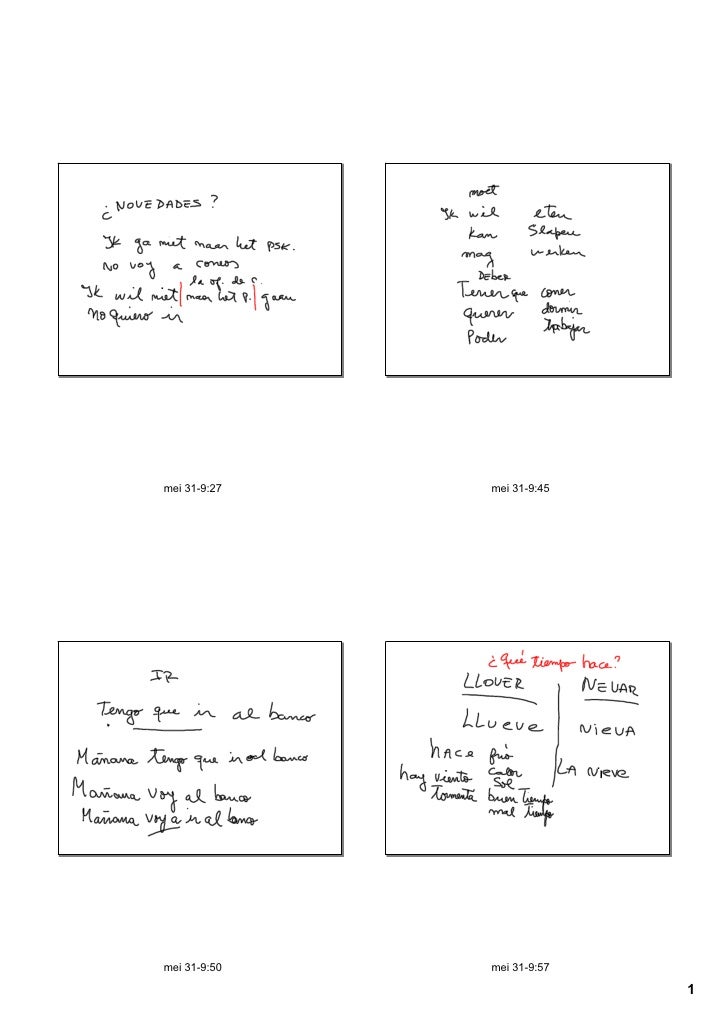 ¿NOVEDADES?
Ik ga niet naar het PSK.
No voy a correos
la of. de c.
Ik wil niet | naar het p. | gaan
No quiero ir
mei 31-9:27
moet
Ik wil eten
kan Slapen
mag werken
DEBER
Tener que comer
querer dormir
Poder trabajar
mei 31-9:45
IR
Tengo que ir al banco
Mañana tengo que ir al banco
Mañana voy al banco
Mañana voy a ir al banco
mei 31-9:50
¿Qué tiempo hace?
LLOVER NEVAR
LLueve NieVA
hAce frío
hay viento calor LA Nieve
Sol
tormenta buen tiempo
mal tiempo
mei 31-9:57
1